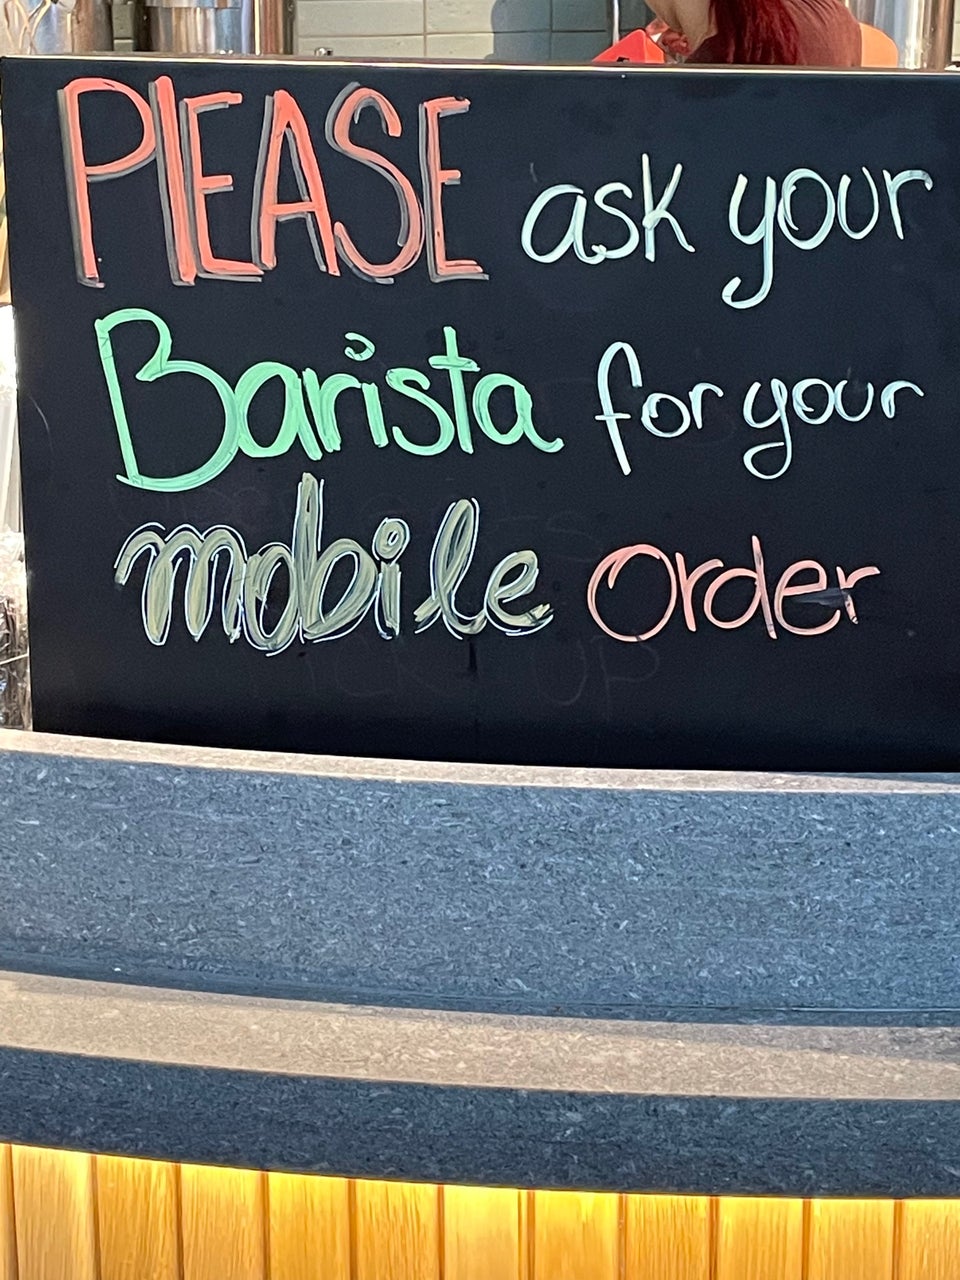 PLEASE ask your
Barista for your
mobile Order
PICK-UP